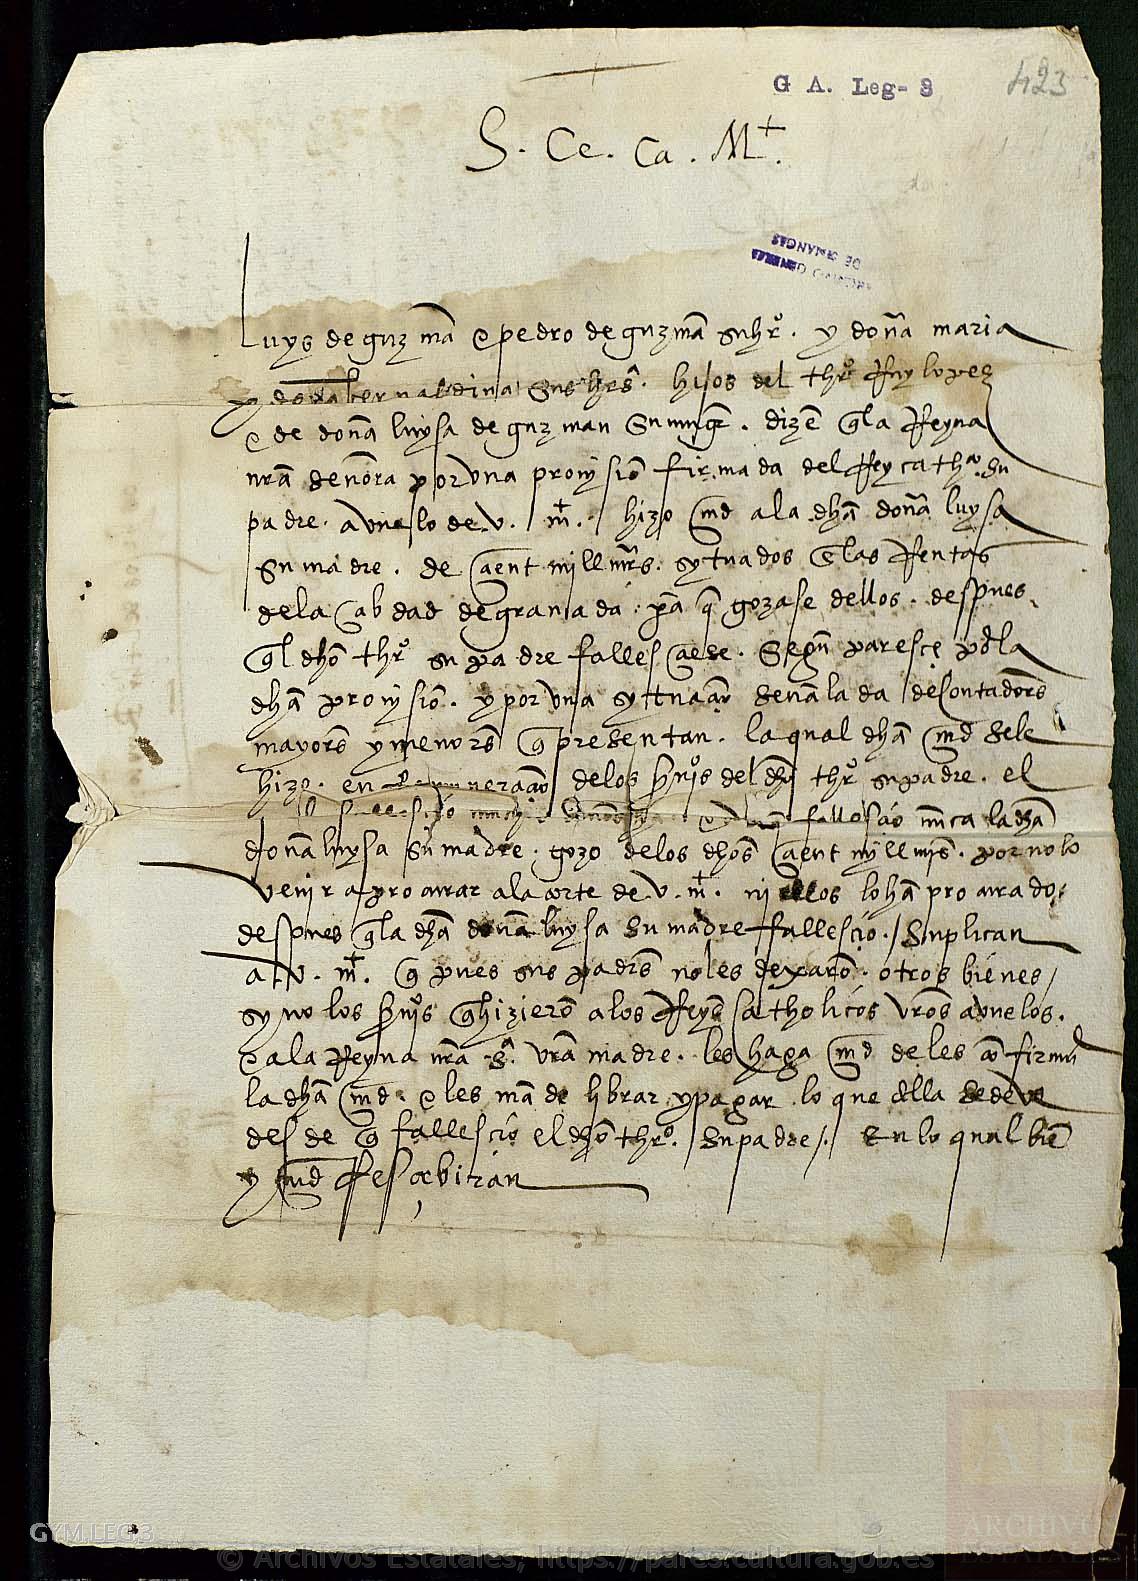 G A. Leg- 3
423
S. Ce. Ca. M+.
ARCHIVO GENERAL
DE SIMANCAS
Luys de guzmā e pedro de guzmā su hrº. y doña maria
y doña bernaldina sus hrˢ. hijos del thrº Ruy lopez
e de doña luysa de guzman su muger. dizē q la Reyna
nrā señora por una provisiō firmada del Rey catholico su
padre. avuelo de .v. m+. hizo mrd a la dhā doña luysa
su madre. de cient mill mrs. sytuados en las Rentas
de la cibdad de granada. pā q gozase dellos. despues
q l dhō thrº su padre fallesciese. Segun paresçe por la
dhā provisiō. y por una sytuaçiō señalada de contadores
mayores y menores q presentan. la qual dhā mrd se le
hizo. en Remuneraçiō de los srviçiºs del dhō thrº su padre. el
fallesció nūca la dhā
doña luysa su madre. gozo de los dhōs cient mill mrs. por no lo
venir a procurar a la corte de v. m+. ni ellos lo hā procurado.
despues q la dhā doña luysa su madre fallesció./ Suplican
a .v. m+. q pues sus padres no les dexarō. otros bienes/
syno los srviçiºs q hizierō a los Reyes catholicos vrōs avuelos.
e a la Reyna nrā srā. vrā madre. les haga mrd de les cōfirmar
la dhā mrd. e les māde librar y pagar lo que della se deve
desde q fallesció el dhō thrº. su padre/. En lo qual biē
y mrd Resçibirán
GYM,LEG,3
ARCHIVOS
ESTATALES
© Archivos Estatales, https://pares.cultura.gob.es